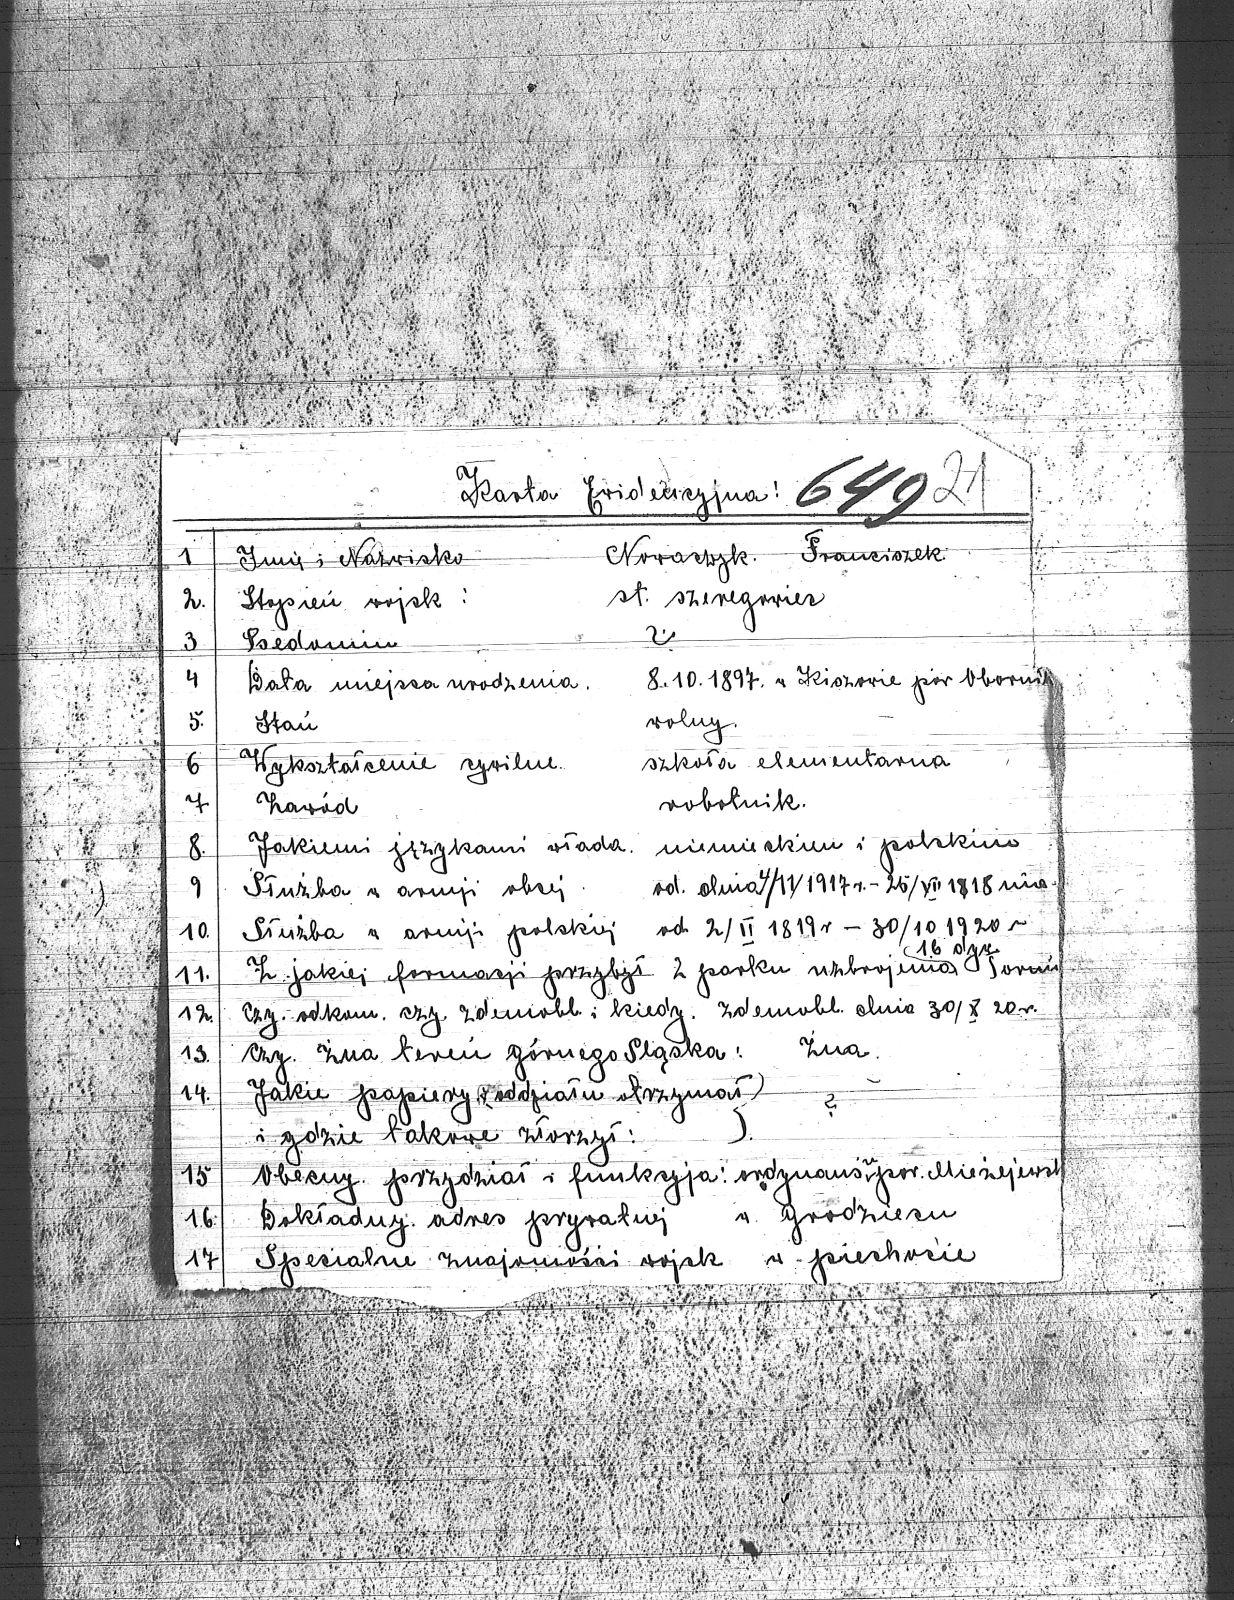 Karta Ewidencyjna! 649 21
1 Imię i Nazwisko Nowaczyk. Franciszek
2. Stopień wojsk : st. szeregowiec
3 Psedonim ?
4 Data miejsca urodzenia. 8.10.1897. w Kiszewie pow Oborni
5. Stań wolny.
6 Wykształcenie cywilne. szkoła elementarna
7 Zawód robotnik.
8. Jakiemi językami włada. niemieckiem i polskim
9 Służba w armji obcej od. dnia 4/11/1917 r. – 25/VII 1818
10. Służba w armji polskiej od 2/II 1819 r – 30/10 1920 r
16 dyw.
11. Z jakiej formacji przybył z parku uzbrojenia
12. czy. odkom. czy zdemobl. i kiedy. zdemobl. dnia 30/X 20 r.
13. czy. zna tereń górnego Sląska : zna.
14. Jakie papiery z oddziału otrzymał) ?
i gdzie takowe złorzył : ).
15 Obecny. przydział i funkcyja: ordynans por. Mieżejewsk
16. Dokładny. adres prywatnej w Grodziecu
17 Specialne znajomości wojsk w piechocie